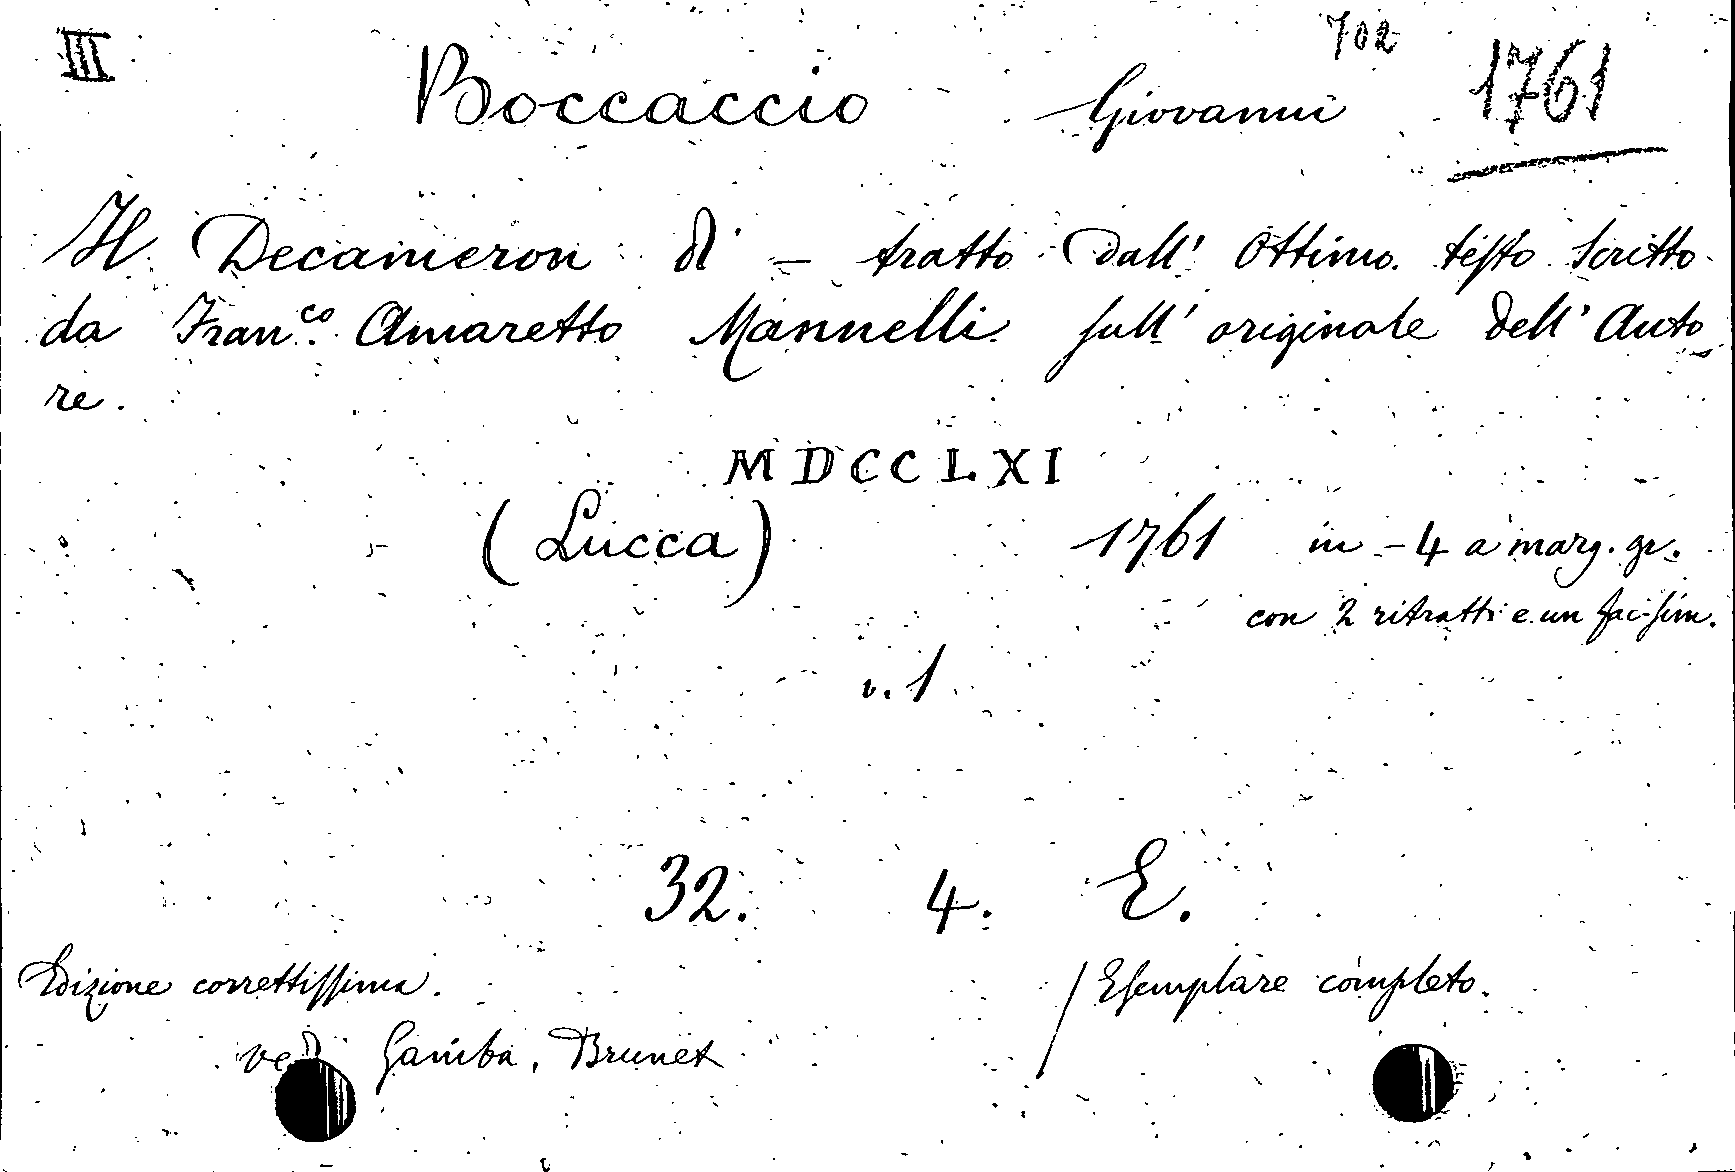 III 702
Boccaccio Giovanni 1761
Il Decameron di – tratto dall' Ottimo testo scritto
da Fran.co Amaretto Mannelli sull' originale dell' Auto
re.
MDCCLXI
(Lucca) 1761 in-4 a marg. gr.
con 2 ritratti e un fac-sim.
v. 1
32. 4. E.
Edizione correttissima. / Esemplare completo.
ved Gamba, Brunet